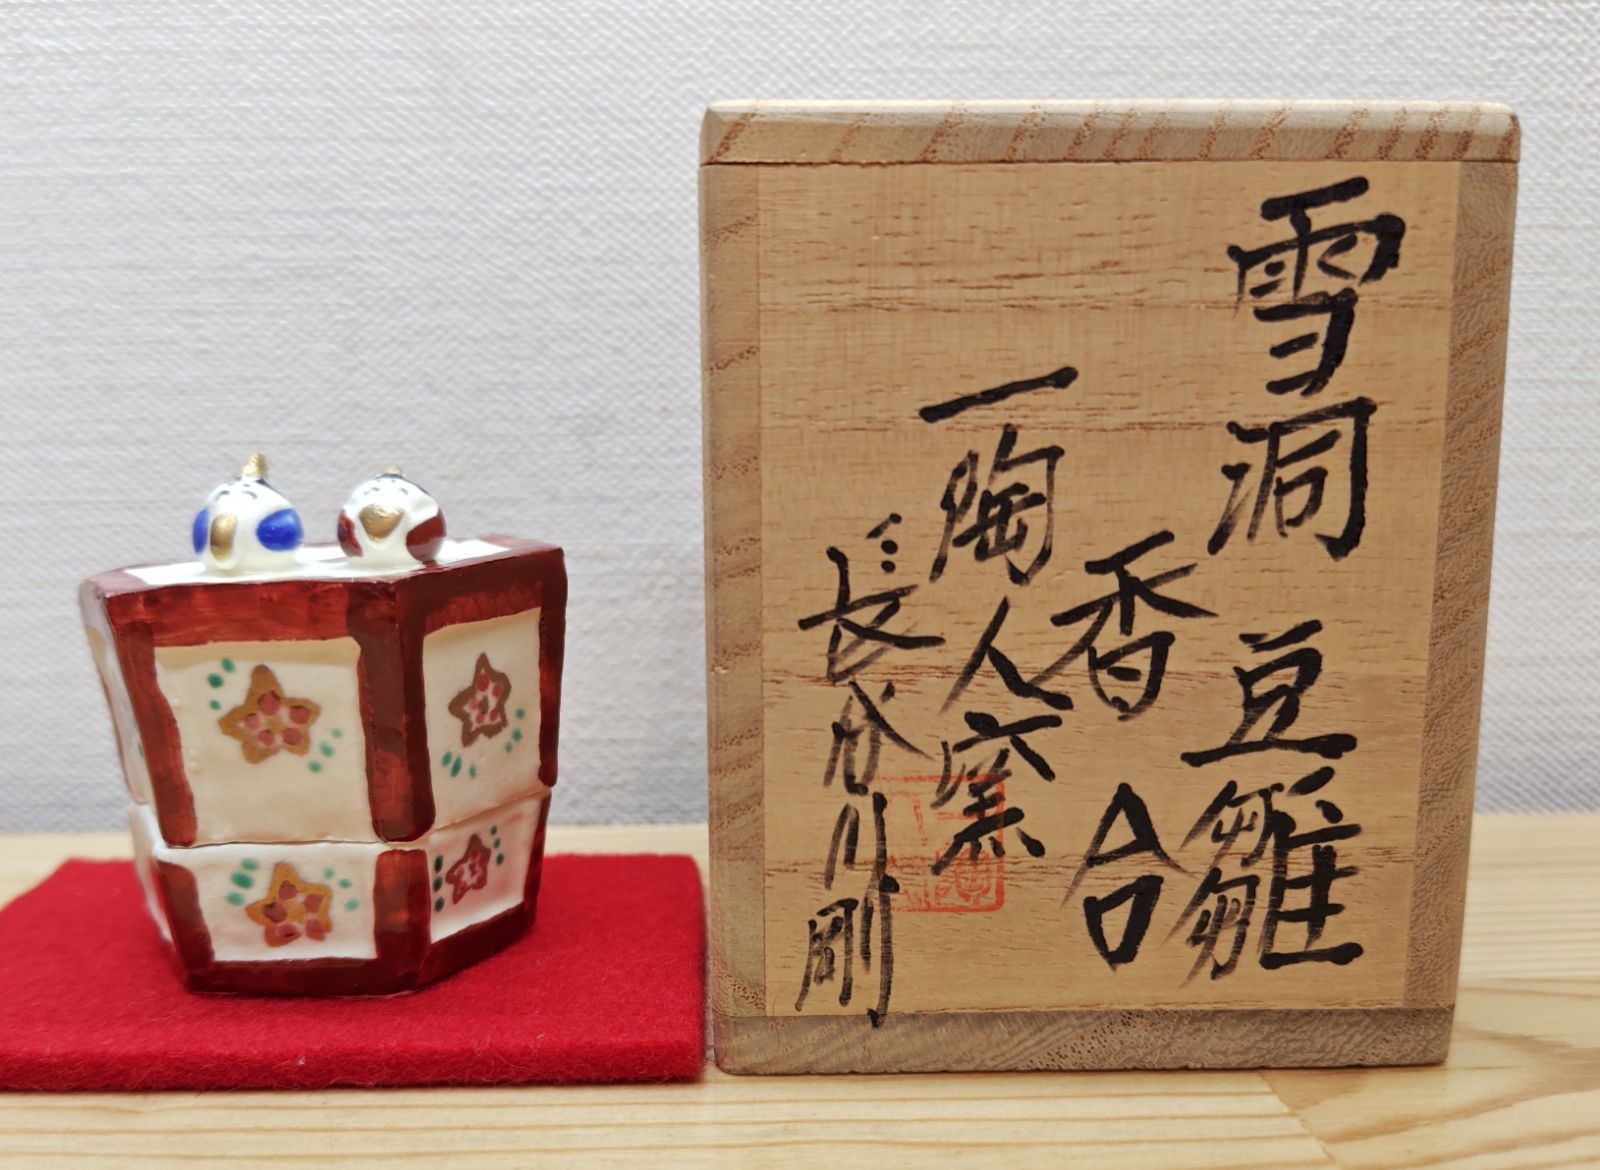 雪洞 豆雛
香合
一陶人窯
長谷川剛